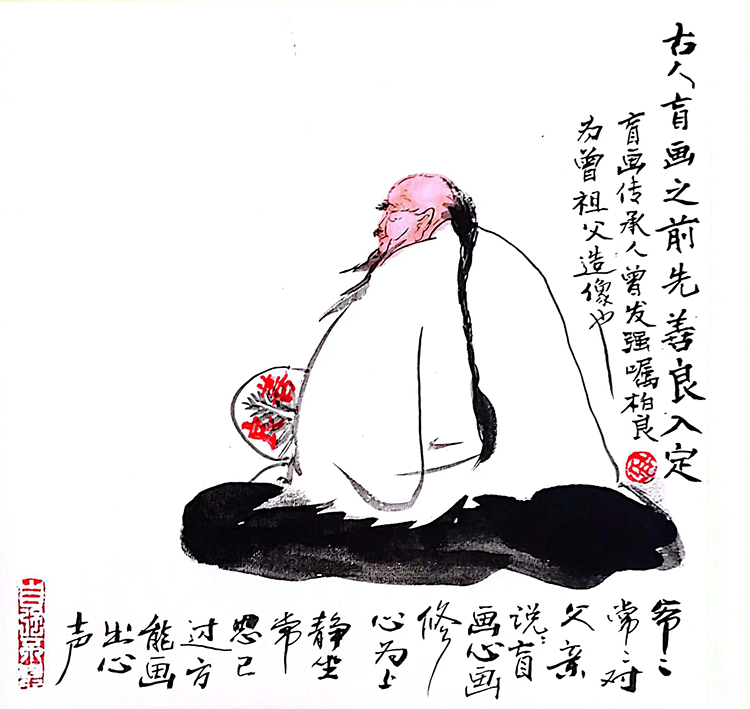 古人盲画之前先善良入定
盲画传承人曾发强嘱柏良
为曾祖父造像也
善良
爷〻
常〻对
父亲
说：盲
画心画
修
心为上
静坐
常
思己
过方
能画
出心
声